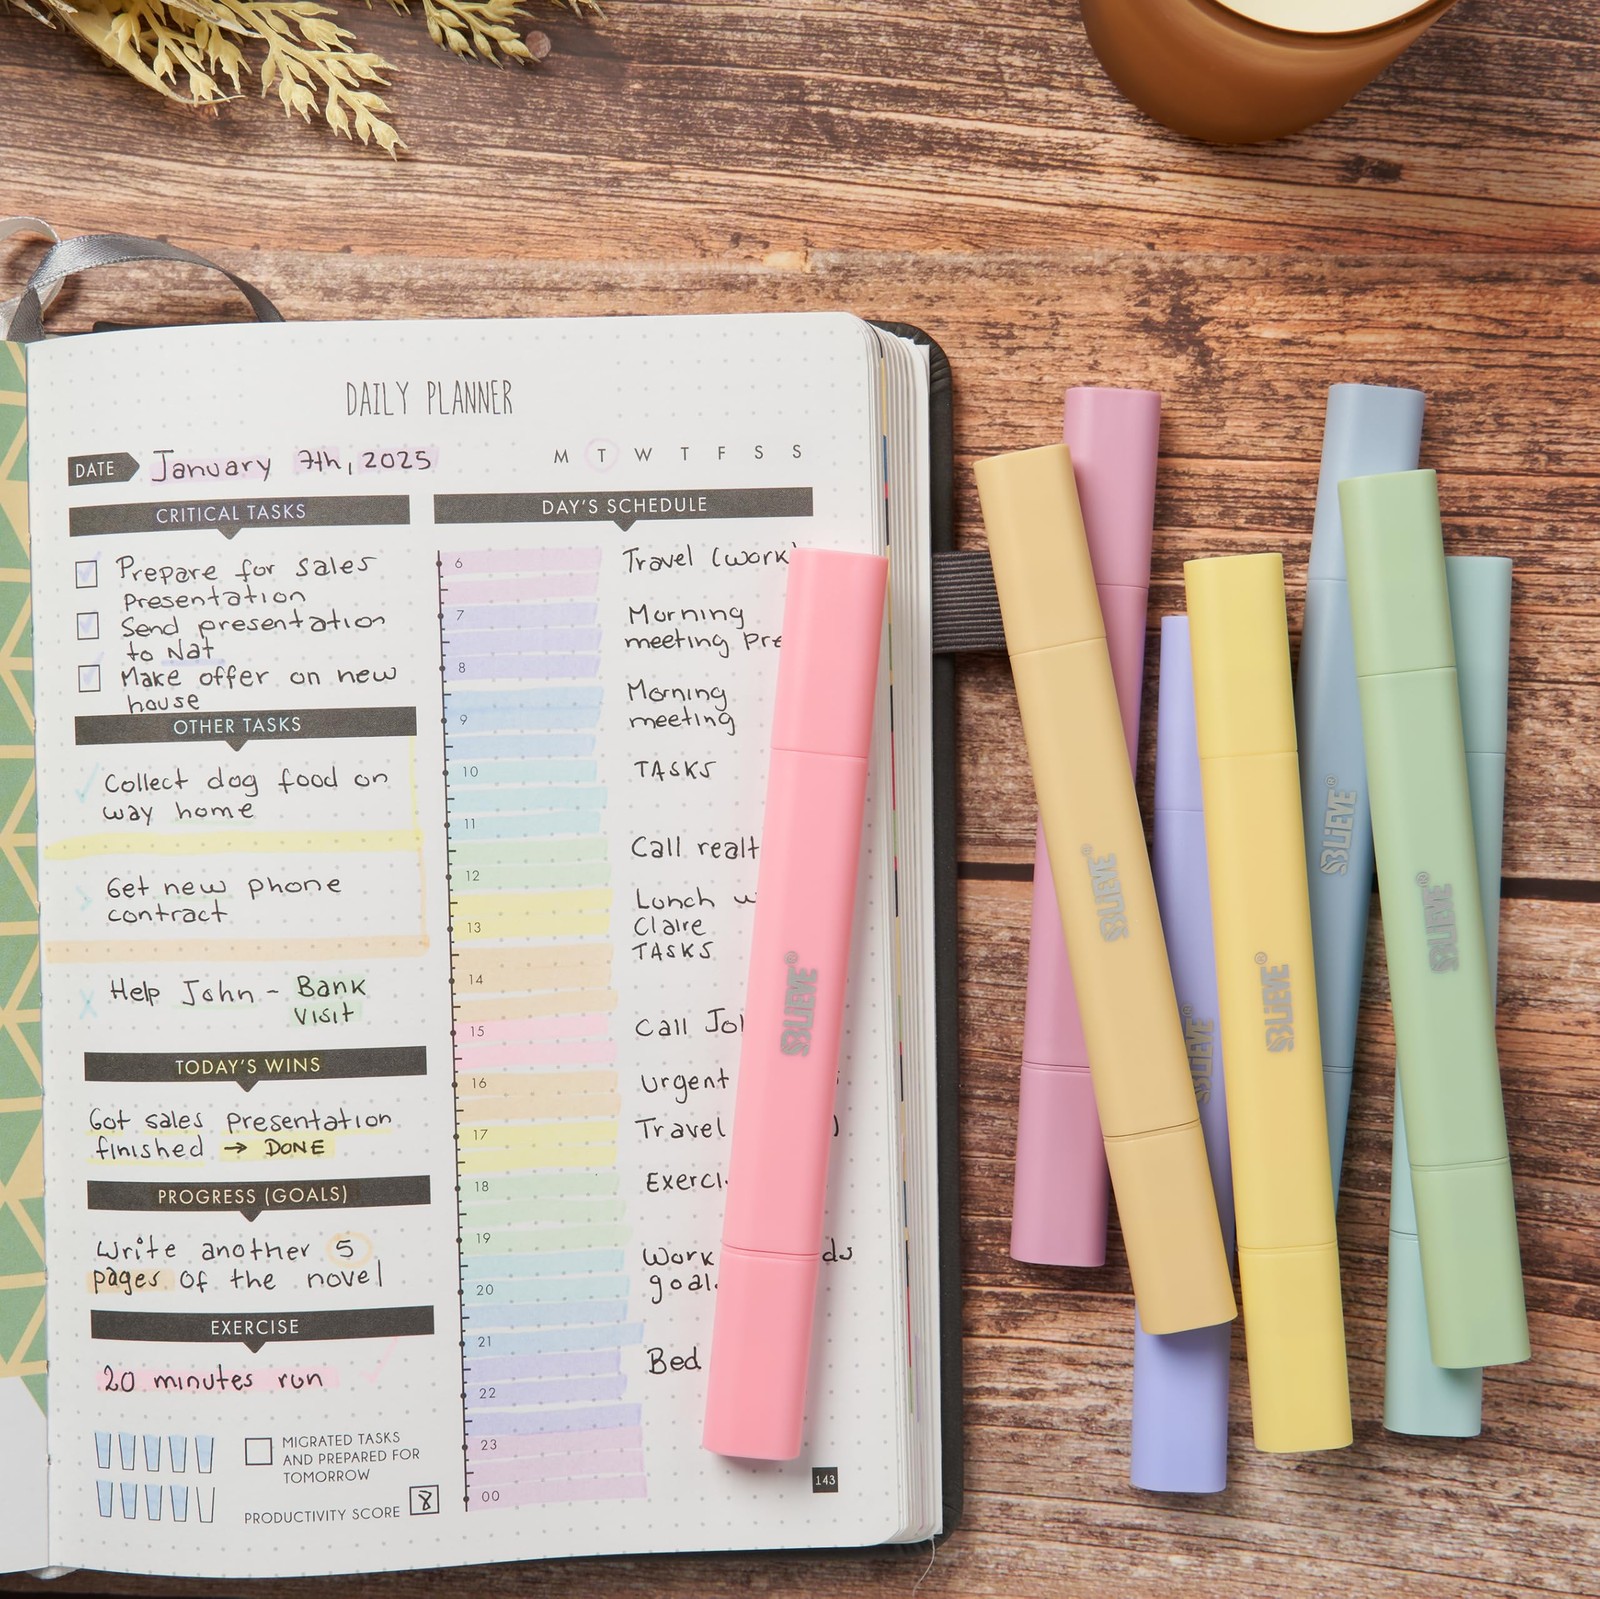 DAILY PLANNER
DATE January 7th, 2025
M T W T F S S
CRITICAL TASKS
Prepare for sales
Presentation
Send presentation
to Nat
Make offer on new
house
OTHER TASKS
Collect dog food on
way home
Get new phone
contract
Help John - Bank
Visit
TODAY'S WINS
Got sales presentation
finished → DONE
PROGRESS (GOALS)
Write another 5
pages of the novel
EXERCISE
20 minutes run
MIGRATED TASKS
AND PREPARED FOR
TOMORROW
PRODUCTIVITY SCORE 8
DAY'S SCHEDULE
6
7
8
9
10
11
12
13
14
15
16
17
18
19
20
21
22
23
00
Travel (work)
Morning
meeting
Morning
meeting
TASKS
Call
Lunch
Claire
TASKS
Call
Urgent
Travel
Work
Bed
143
BLIEVE®
BLIEVE®
BLIEVE®
BLIEVE®
BLIEVE®
BLIEVE®